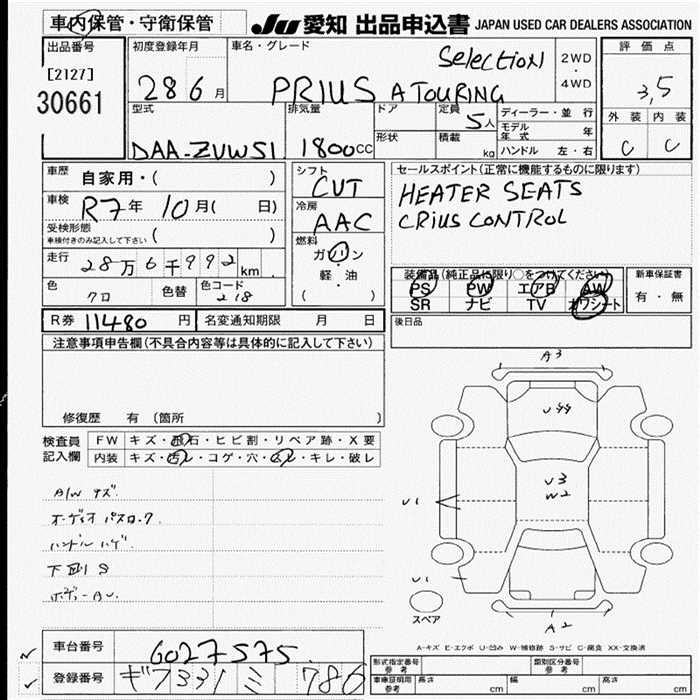 車内保管・守衛保管
JU 愛知 出品申込書 JAPAN USED CAR DEALERS ASSOCIATION
出品番号
[2127]
30661
初度登録年月
28 6 月
車名・グレード
Selection
PRIUS A TOURING
2WD
・
4WD
評価点
3,5
外装 内装
C C
型式
DAA-ZVW51
排気量
1800cc
ドア
形状
定員
5人
積載
kg
ディーラー・並行
モデル年式 年
ハンドル 左・右
車歴
自家用・( )
車検
R7年 10月( 日)
受検形態
車検付きのみ記入して下さい ( )
走行
28万6千992km
色
クロ
色替
色コード
218
シフト
CVT
冷房
AAC
燃料
ガソリン
・
軽・油
( )
セールスポイント(正常に機能するものに限ります)
HEATER SEATS
CRIUS CONTROL
装備品(純正品に限り○をつけてください)
PS PW エアB AW
SR ナビ TV カワシート
新車保証書
有・無
R券 11480 円
名変通知期限 月 日
後日品
注意事項申告欄(不具合内容等は具体的に記入して下さい)
修復歴 有 (箇所 )
検査員
記入欄
FW キズ・飛石・ヒビ割・リペア跡・X要
内装 キズ・汚レ・コゲ・穴・スレ・キレ・破レ
A/W キズ.
オーディオ パスロック
ハンドル ハゲ.
下廻り S
A3
U1
U3
W2
U1
スペア
A2
A-キズ E-エクボ U-凹み W-補修跡 S-サビ C-腐食 XX-交換済
車台番号
6027575
登録番号
ギフ331 ミ 786
形式指定番号
参考
類別区分番号
参考
車庫証明用
参考
長さ cm
幅 cm
高さ cm